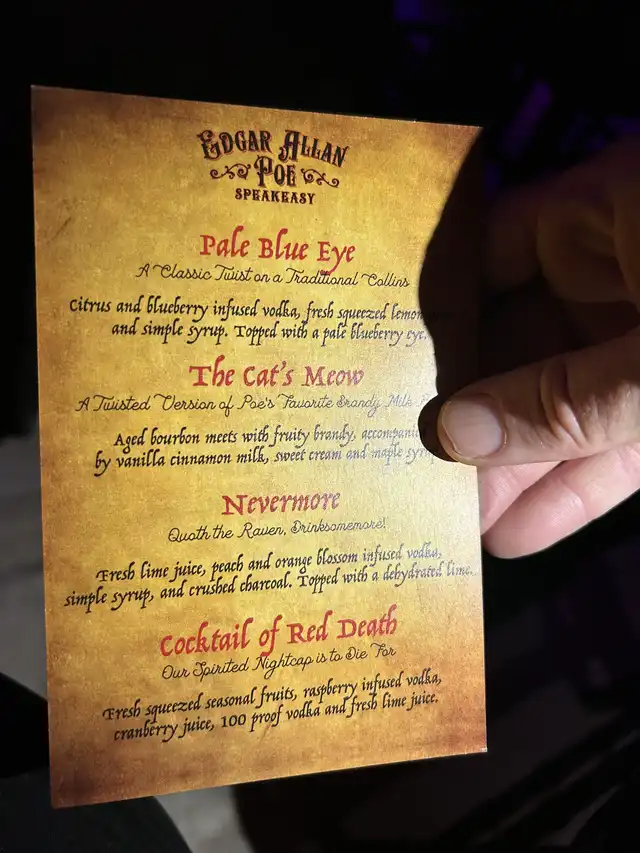 Edgar Allan
Poe
Speakeasy
Pale Blue Eye
A Classic Twist on a Traditional Collins
Citrus and blueberry infused vodka, fresh squeezed lemon
and simple syrup. Topped with a pale blueberry eye.
The Cat's Meow
A Twisted Version of Poe's Favorite Brandy Milk
Aged bourbon meets with fruity brandy,
by vanilla cinnamon milk, sweet cream and maple
Nevermore
Quoth the Raven, Drinksomemore!
Fresh lime juice, peach and orange blossom infused vodka,
simple syrup, and crushed charcoal. Topped with a dehydrated lime.
Cocktail of Red Death
Our Spirited Nightcap is to Die For
Fresh squeezed seasonal fruits, raspberry infused vodka,
cranberry juice, 100 proof vodka and fresh lime juice.